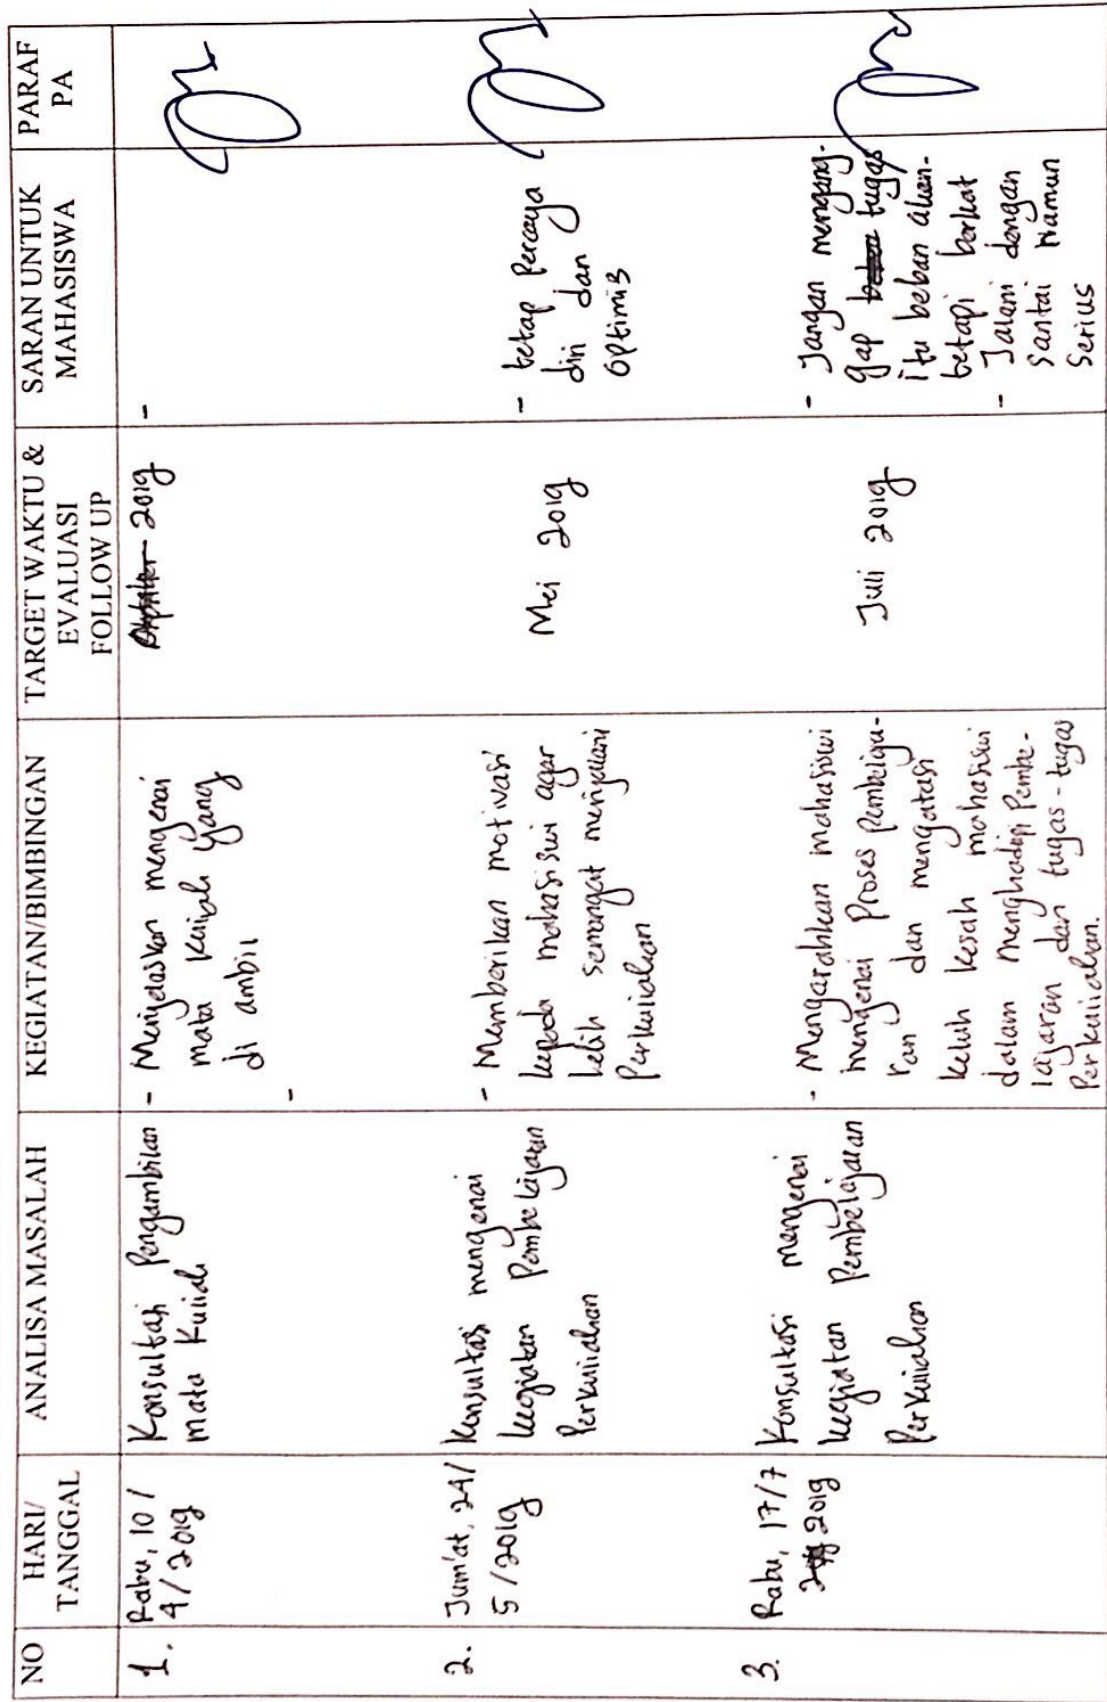 NO
HARI/
TANGGAL
ANALISA MASALAH
KEGIATAN/BIMBINGAN
TARGET WAKTU &
EVALUASI
FOLLOW UP
SARAN UNTUK
MAHASISWA
PARAF
PA
1.
Rabu, 10/
4/2019
Konsultasi Pengambilan
mata Kuliah
- Menjelaskan mengenai
mata kuliah yang
di ambil
-
2019
-
2.
Jum'at, 24/
5/2019
Konsultasi mengenai
kegiatan Pembelajaran
Perkuliahan
- Memberikan motivasi
kepada mahasiswi agar
lebih semangat menjalani
Perkuliahan
Mei 2019
- tetap Percaya
diri dan
Optimis
3.
Rabu, 17/7
2019
Konsultasi mengenai
kegiatan Pembelajaran
Perkuliahan
- Mengarahkan mahasiswi
mengenai Proses Pembelaja-
ran dan mengatasi
keluh kesah mahasiswi
dalam menghadapi Pembe-
lajaran dan tugas-tugas
Perkuliahan.
Juli 2019
- Jangan mengang-
gap tugas
itu beban akan-
tetapi berkat
- Jalani dengan
santai Namun
Serius